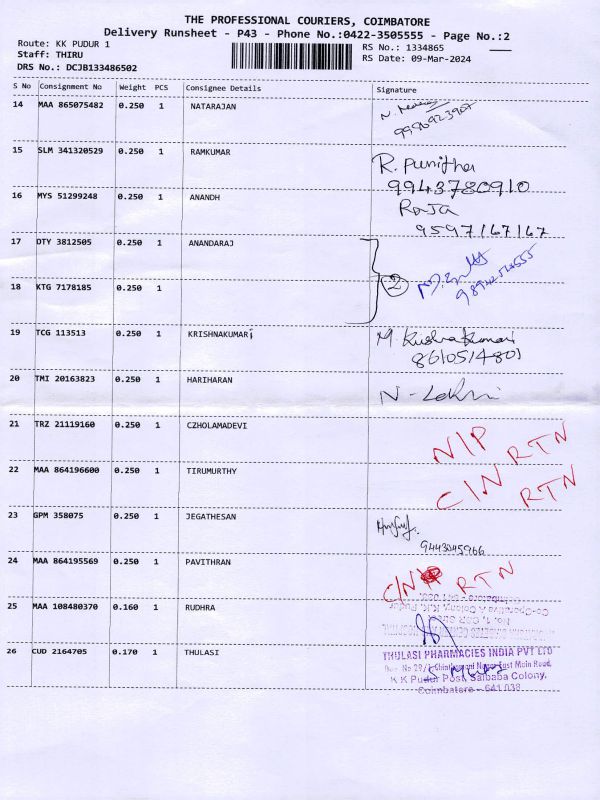 THE PROFESSIONAL COURIERS, COIMBATORE
Delivery Runsheet - P43 - Phone No.:0422-3505555 - Page No.:2
Route: KK PUDUR 1
RS No.: 1334865
Staff: THIRU
RS Date: 09-Mar-2024
DRS No.: DCJB133486502
S No Consignment No Weight PCS Consignee Details Signature
14 MAA 865075482 0.250 1 NATARAJAN
15 SLM 341320529 0.250 1 RAMKUMAR R. Punitha
9943780910
16 MYS 51299248 0.250 1 ANANDH Raja
9597167167
17 DTY 3812505 0.250 1 ANANDARAJ
18 KTG 7178185 0.250 1 2
19 TCG 113513 0.250 1 KRISHNAKUMARi M. Krishnakumari
8610514801
20 TMI 20163823 0.250 1 HARIHARAN N-Lakmi
21 TRZ 21119160 0.250 1 CZHOLAMADEVI N/P RTN
22 MAA 864196600 0.250 1 TIRUMURTHY C/N RTN
23 GPM 358075 0.250 1 JEGATHESAN
9443045966
24 MAA 864195569 0.250 1 PAVITHRAN C/N RTN
25 MAA 108480370 0.160 1 RUDHRA
Co-Operative A Colony, K.K. Pudur
26 CUD 2164705 0.170 1 THULASI THULASI PHARMACIES INDIA PVT LTD
East Main Road,
K K Pudur Post, Saibaba Colony,
Coimbatore - 641 038.